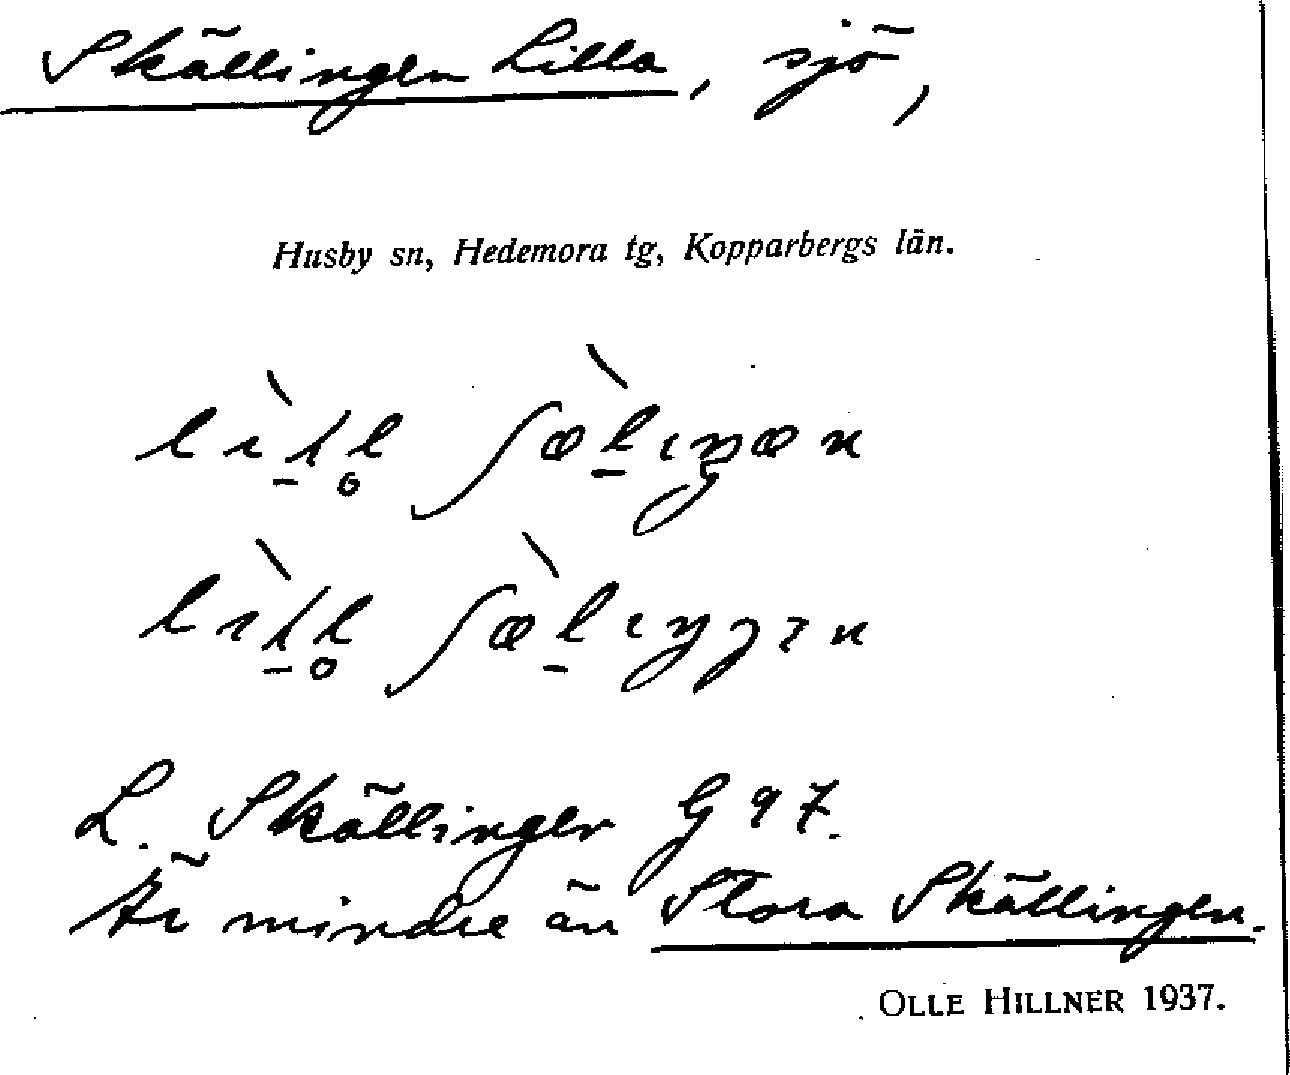 Skällingen Lilla, sjö,
Husby sn, Hedemora tg, Kopparbergs län.
L. Skällingen G 97.
Är mindre än Stora Skällingen.
OLLE HILLNER 1937.